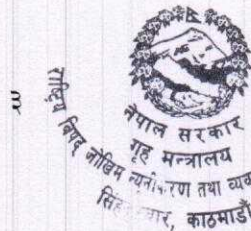 नेपाल सरकार
गृह मन्त्रालय
राष्ट्रिय विपद् जोखिम न्यूनीकरण तथा
काठमाडौं